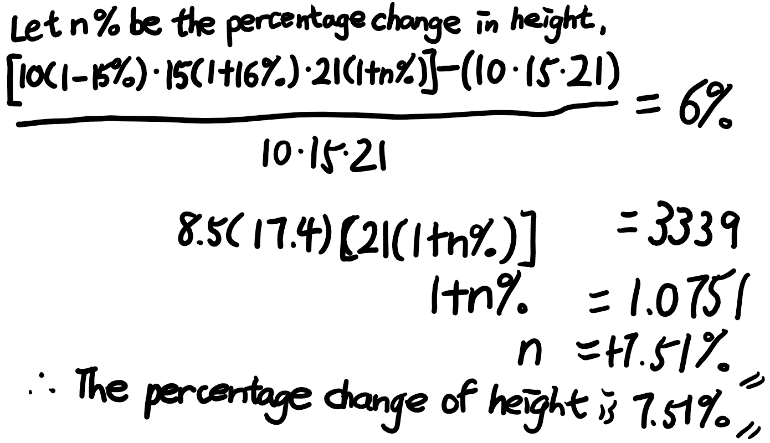 Let n% be the percentage change in height.
[10(1-15%)·15(1+16%)·21(1+n%)]-(10·15·21)
10·15·21
= 6%
8.5(17.4)[21(1+n%)] = 3339
1+n% = 1.0751
n = +7.51%
∴ The percentage change of height is 7.51%